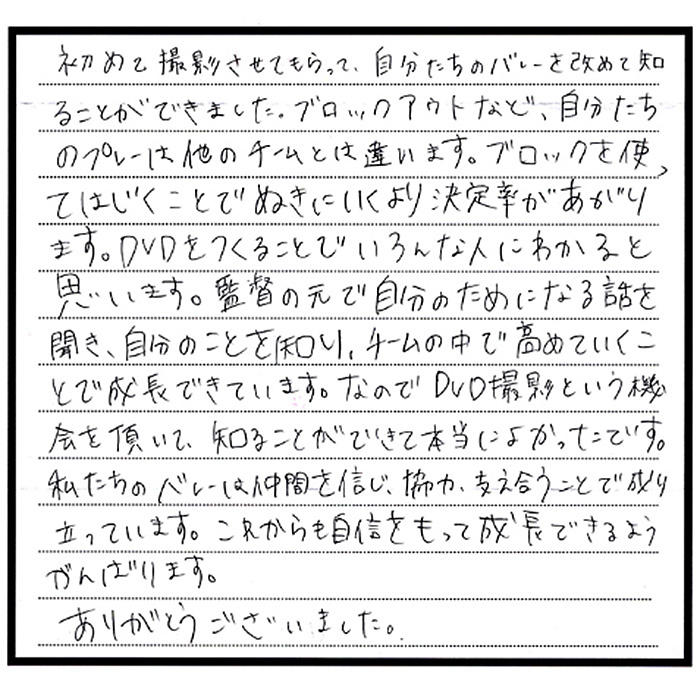 初めて撮影させてもらって、自分たちのバレーを改めて知
ることができました。ブロックアウトなど、自分たち
のプレーは他のチームとは違います。ブロックを使っ
てはじくことでぬきにいくより決定率があがり
ます。DVDをつくることでいろんな人にわかると
思います。監督の元で自分のためになる話を
聞き、自分のことを知り、チームの中で高めていくこ
とで成長できています。なのでDVD撮影という機
会を頂いて、知ることができて本当によかったです。
私たちのバレーは仲間を信じ、協力、支え合うことで成り
立っています。これからも自信をもって成長できるよう
がんばります。
ありがとうございました。